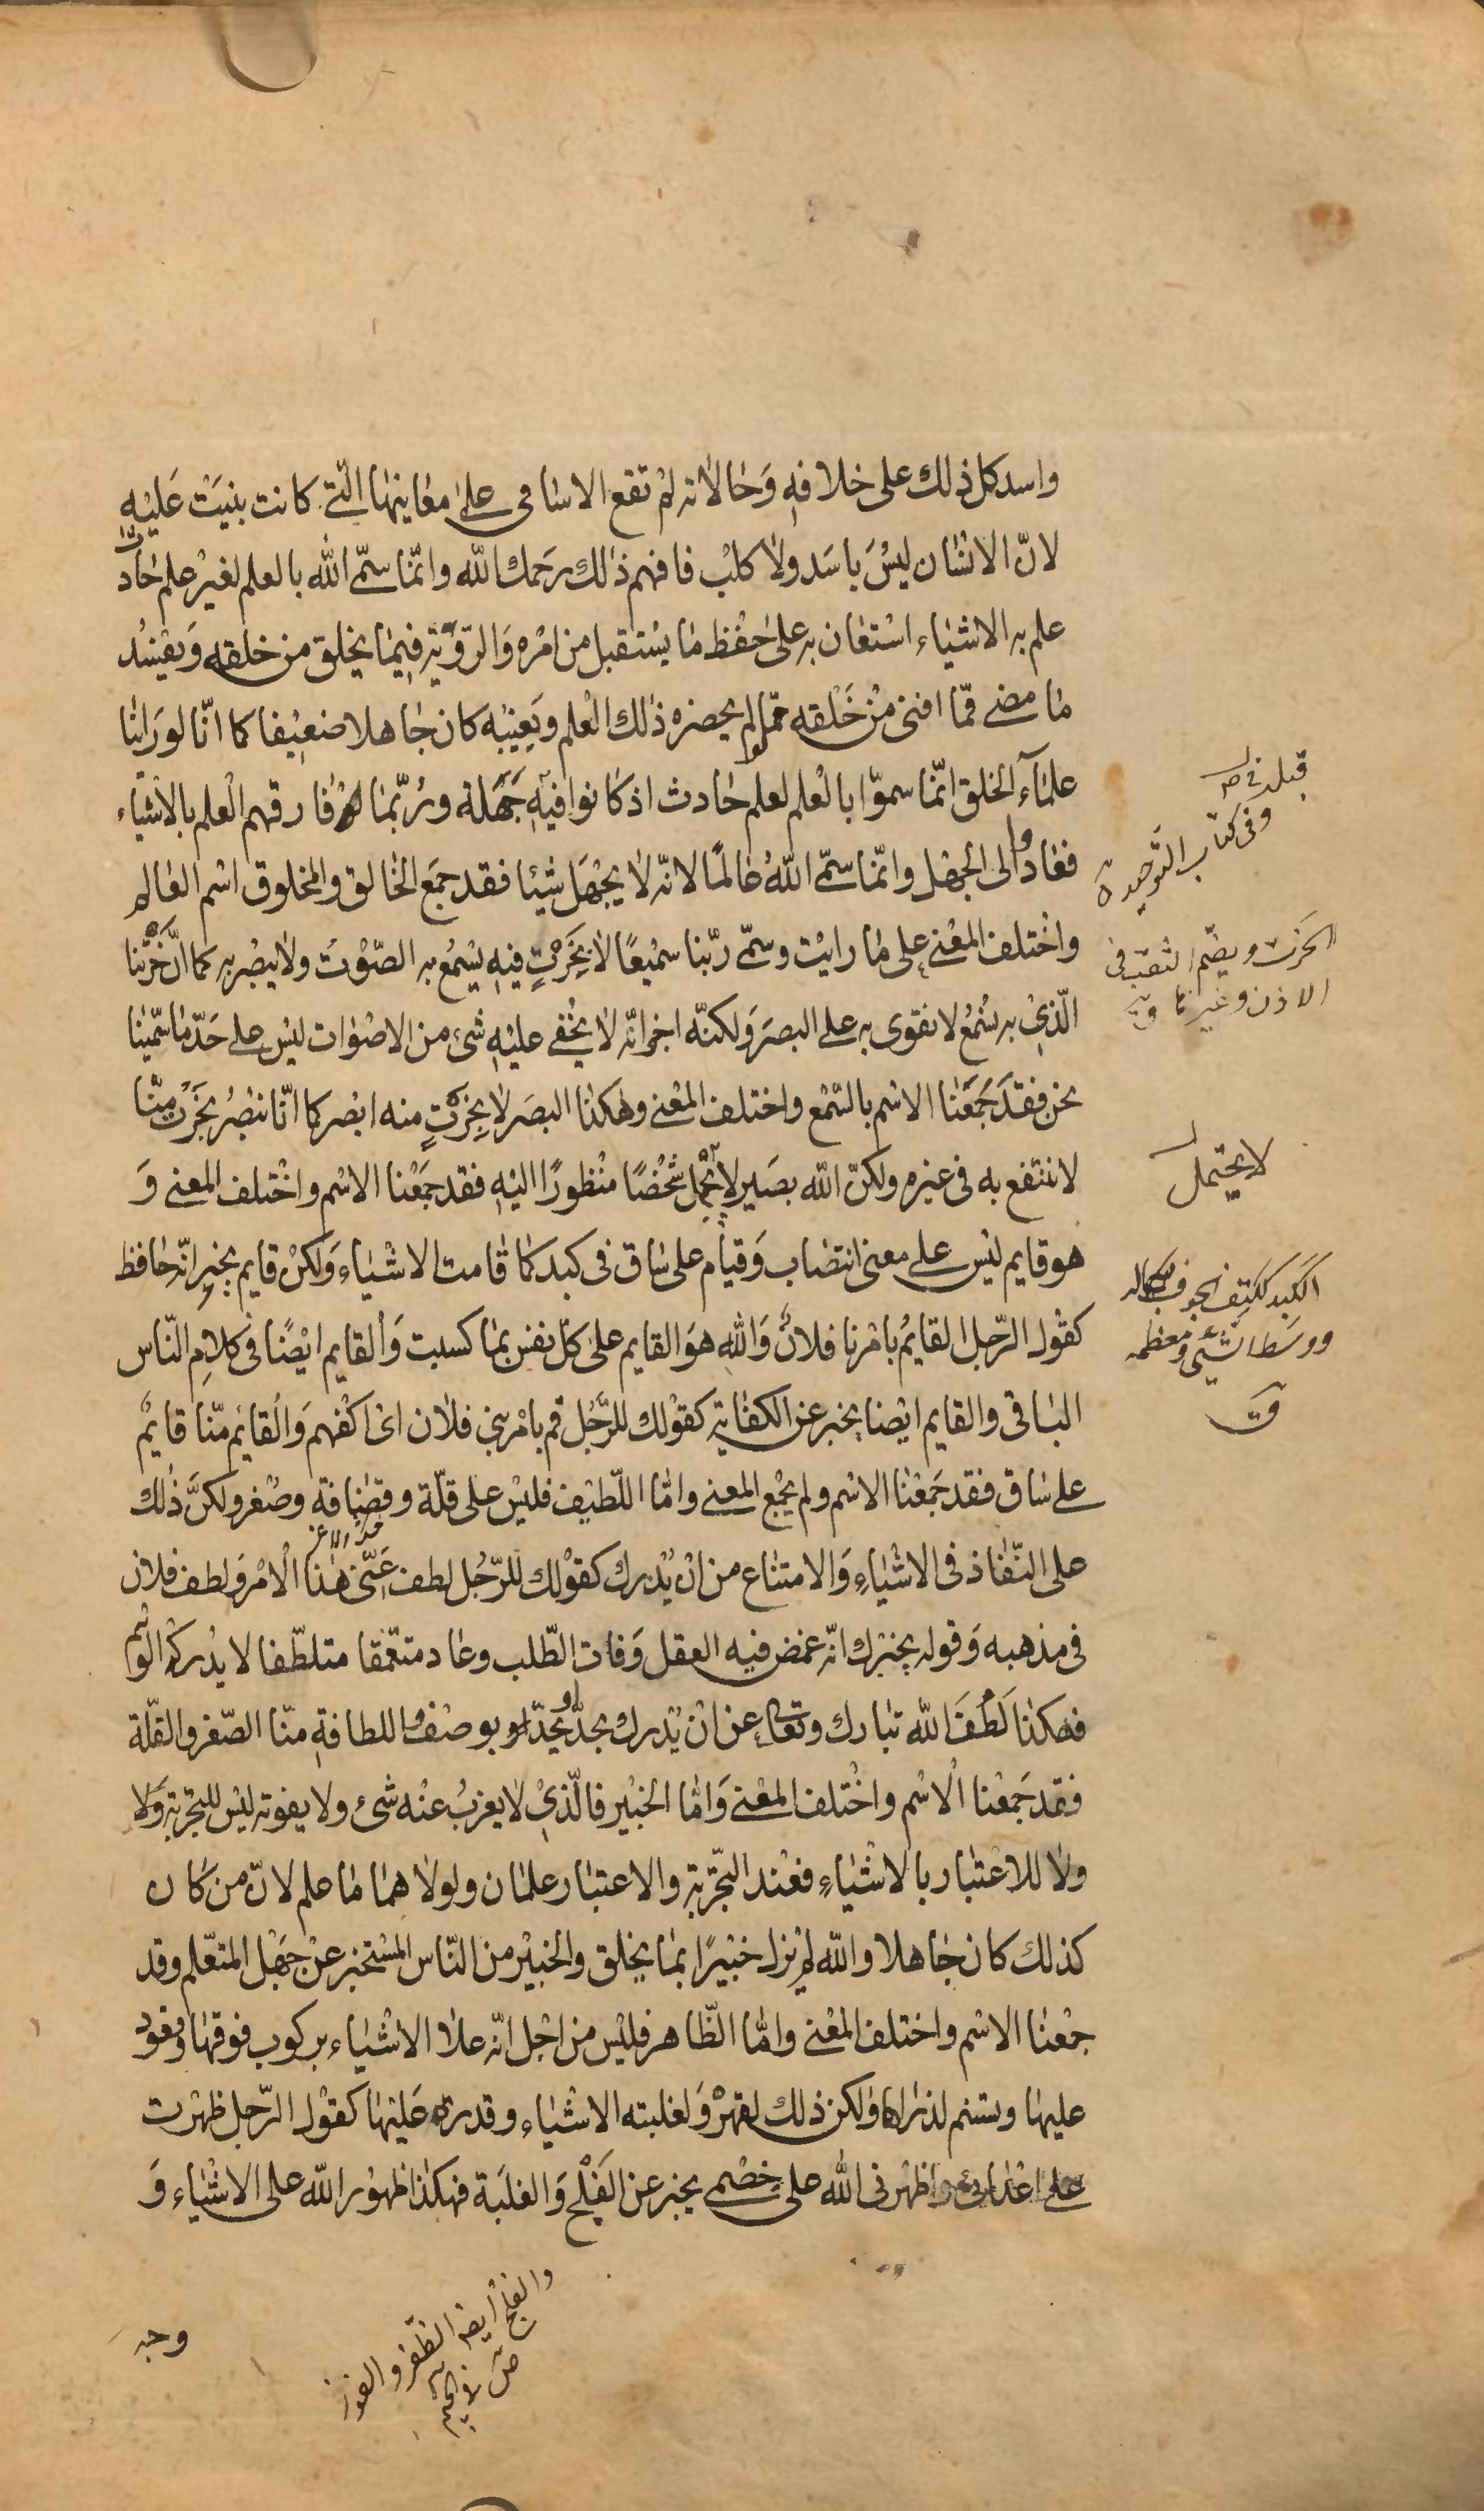 واسد كل ذلك على خلافه وَحالاته لم تقع الاسامى على معانيها الّتى كانت بنيَتْ عَليْه
لانّ الانسان ليْسَ باسَد ولا كلب فافهم ذلك رحمك اللّه وانّما سمّى اللّه بالعلم لغيْر علم حادث
علم به الاشياء استعان به على حفظ ما يستقبل من امْره وَالرّويّة فيما يخلق من خلقه وَيفسُد
ما مضى ممّا افنى منْ خَلْقه ممّا لو لم يحضره ذلك العْلم وَيَغيبْه كان جاهلا ضعيْفا كما انّا لو رَايْنا
علمآء الخلق انّما سموّا بالعْلم لعلم حادث اذ كانوا فيْه جَهَلة ورُبّما فارقهم العْلم بالاشياء
فعادوا الى الجهْل وانّما سمّى اللّهُ عالمًا لانّه لا يجْهَل شيْئا فقد جمَع الخالق والمخلوق اسْم العالم
واخْتلف المعْنى على ما رايْت وسمّى ربّنا سميْعًا لا بخَرْتٍ فيْه يسْمعُ به الصّوْت ولا يبْصر به كما انّ خَرْتنا
الّذىْ به نسْمعُ لا نقوى به على البصَر وَلكنّه اخبر انّه لا يخْفى عليْه شئ من الاصْوات ليْس على حَدّ ما سمّينا
نحن فقدَ جَمَعَنا الاسْم بالسّمْع واختلف المعْنى وهكذا البصَر لا بخَرْتٍ منه ابْصر كما انّا نبْصرُ بخَرْتٍ منّا
لا ننتفع به فى غيره ولكنّ اللّه بصَير لا يحْمل شخْصًا منْظورًا اليْه فقد جمَعْنا الاسْم واخْتلف المعنى وَ
هو قايم ليْس على معنى انتصاب وَقيام على ساق فى كبد كما قامت الاشْياء وَلكنْ قايم يخبر انّه حافظ
كقول الرّجل القايمُ بامْرنا فلانٌ وَاللّهِ هوَ القايم على كلّ نفس بما كسبت وَالقايم ايْضًا فى كلامِ النّاس
الباقى والقايم ايْضا يخبر عن الكفاية كقوْلك للرّجُل قم بامْر بنى فلان اىْ اكْفهمَ وَالْقائم منّا قايمٌ
على ساق فقد جَمَعْنا الاسْم ولم يجْمع المعنى وامّا اللّطيْف فليْس على قلّة وقضافة وصْغر ولكنّ ذلك
على النّفاذ فى الاشْياءِ وَالامتناع من انْ يدْرك كقوْلك للرّجُل لطف عَنّى هذا الْامْر وَلطف فلان
فى مذهبه وَقوله يخْبرك انّه غمض فيه العقل وَفات الطّلب وعاد متعمّقا متلطّفا لا يدْركه الوهْم
فهكذا لَطُفَ اللّه تبارك وتعالى عن انْ يدْرك بحدّ او يحدّ بوصْف واللطافةِ منّا الصّغر والقلّة
فقد جَمعْنا الْاسْم واخْتلف المعْنى وَامّا الخبيْر فالّذىْ لا يعزبُ عنْه شئ ولا يفوته ليْس للتجْربة وَلا
ولا للاعْتبار بالاشْياءِ فعْند التّجْربة والاعتبار علمان ولولا هما ما علم لانّ من كان
كذلك كان جاهلا واللّه لم يزل خبيْرًا بما يخلق والخبيْر من النّاس المسْتخبر عنْ جهْل المتعّلم وقد
جمْعنا الاسْم واختلف المعْنى وامّا الظّاهر فليْس من اجْل انّه علا الاشْياء بركوب فوقها وقعود
عليها وتسنم لذراها ولكن ذلك لقهرْه وَلغلبته الاشْياء وقدرته عَليْها كقوْل الرّجل ظهرْت
على اعْدائى واظهرنى اللّه على خصْمى يخبر عن الفَلْج وَالغلَبَة فهكذا ظهوْر اللّه على الاشْياء وَ
وجه
وفى كتاب التّوحيد
الخرت ويضّم الثقب فى
الاذن وغيرها ق
لا يحتمل
الكبد ككتف الجوف بكماله
ووسَط الشّئ ومعظمه
ق
والفلج ايضا الظّفر والفوز